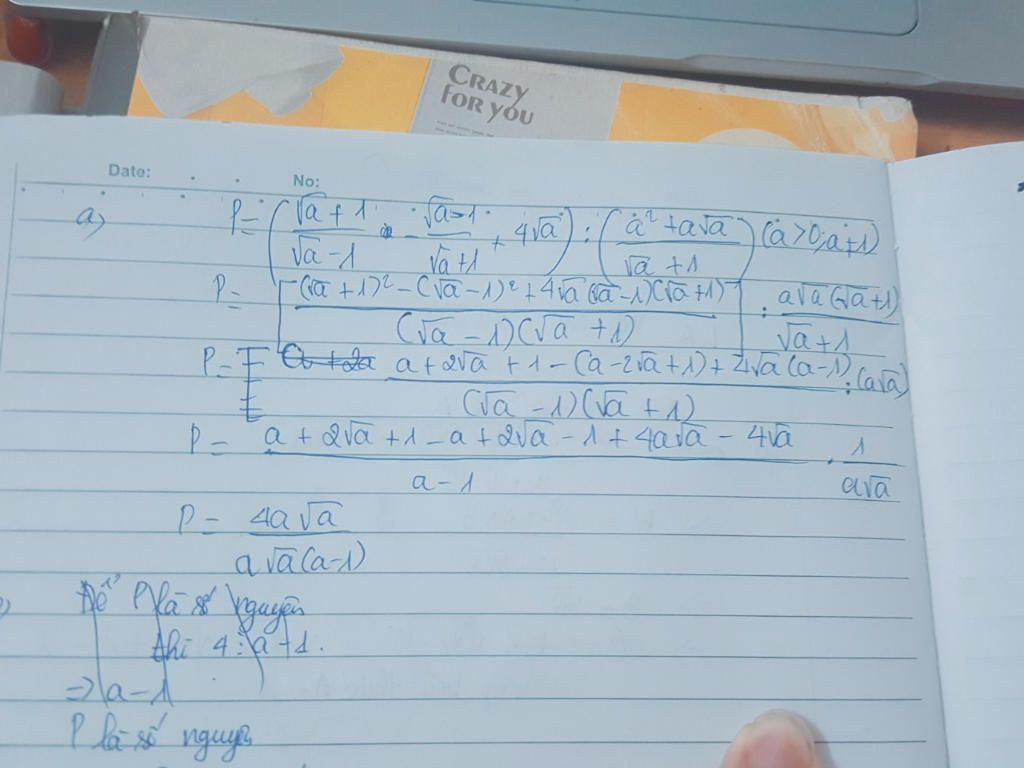 CRAZY
FOR YOU
Date:
No:
a) P = ( (√a + 1)/(√a - 1) - (√a - 1)/(√a + 1) + 4√a ) : ( (a² + a√a)/(√a + 1) ) (a > 0; a ≠ 1)
P = [ ((√a + 1)² - (√a - 1)² + 4√a(√a - 1)(√a + 1))/((√a - 1)(√a + 1)) ] : (a√a(√a + 1))/(√a + 1)
P = (a + 2√a + 1 - (a - 2√a + 1) + 4√a(a - 1))/((√a - 1)(√a + 1)) : (a√a)
P = (a + 2√a + 1 - a + 2√a - 1 + 4a√a - 4√a)/(a - 1) . 1/(a√a)
P = (4a√a)/(a√a(a - 1))
Để P là số nguyên
thì 4 ⋮ a - 1.
=> a - 1
P là số nguyên